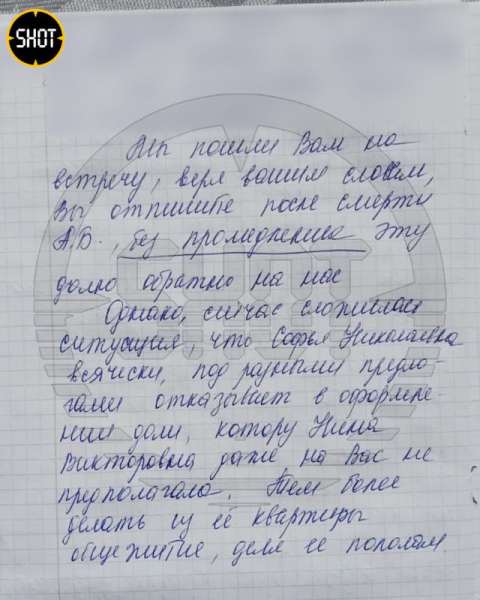 SHOT
Мы пошли Вам на
встречу, веря вашим словам,
Вы отпишите после смерти
А.В., без промедления эту
долю обратно на нас
Однако, сичас сложилась
ситуация, что Софья Николаевна
всячески, под разными предло-
гами отказывает в оформле-
нии доли, котору Нина
Викторовна даже на Вас не
предполагала. Тем более
делать из её квартиры
общежитие, деля ее пополам.